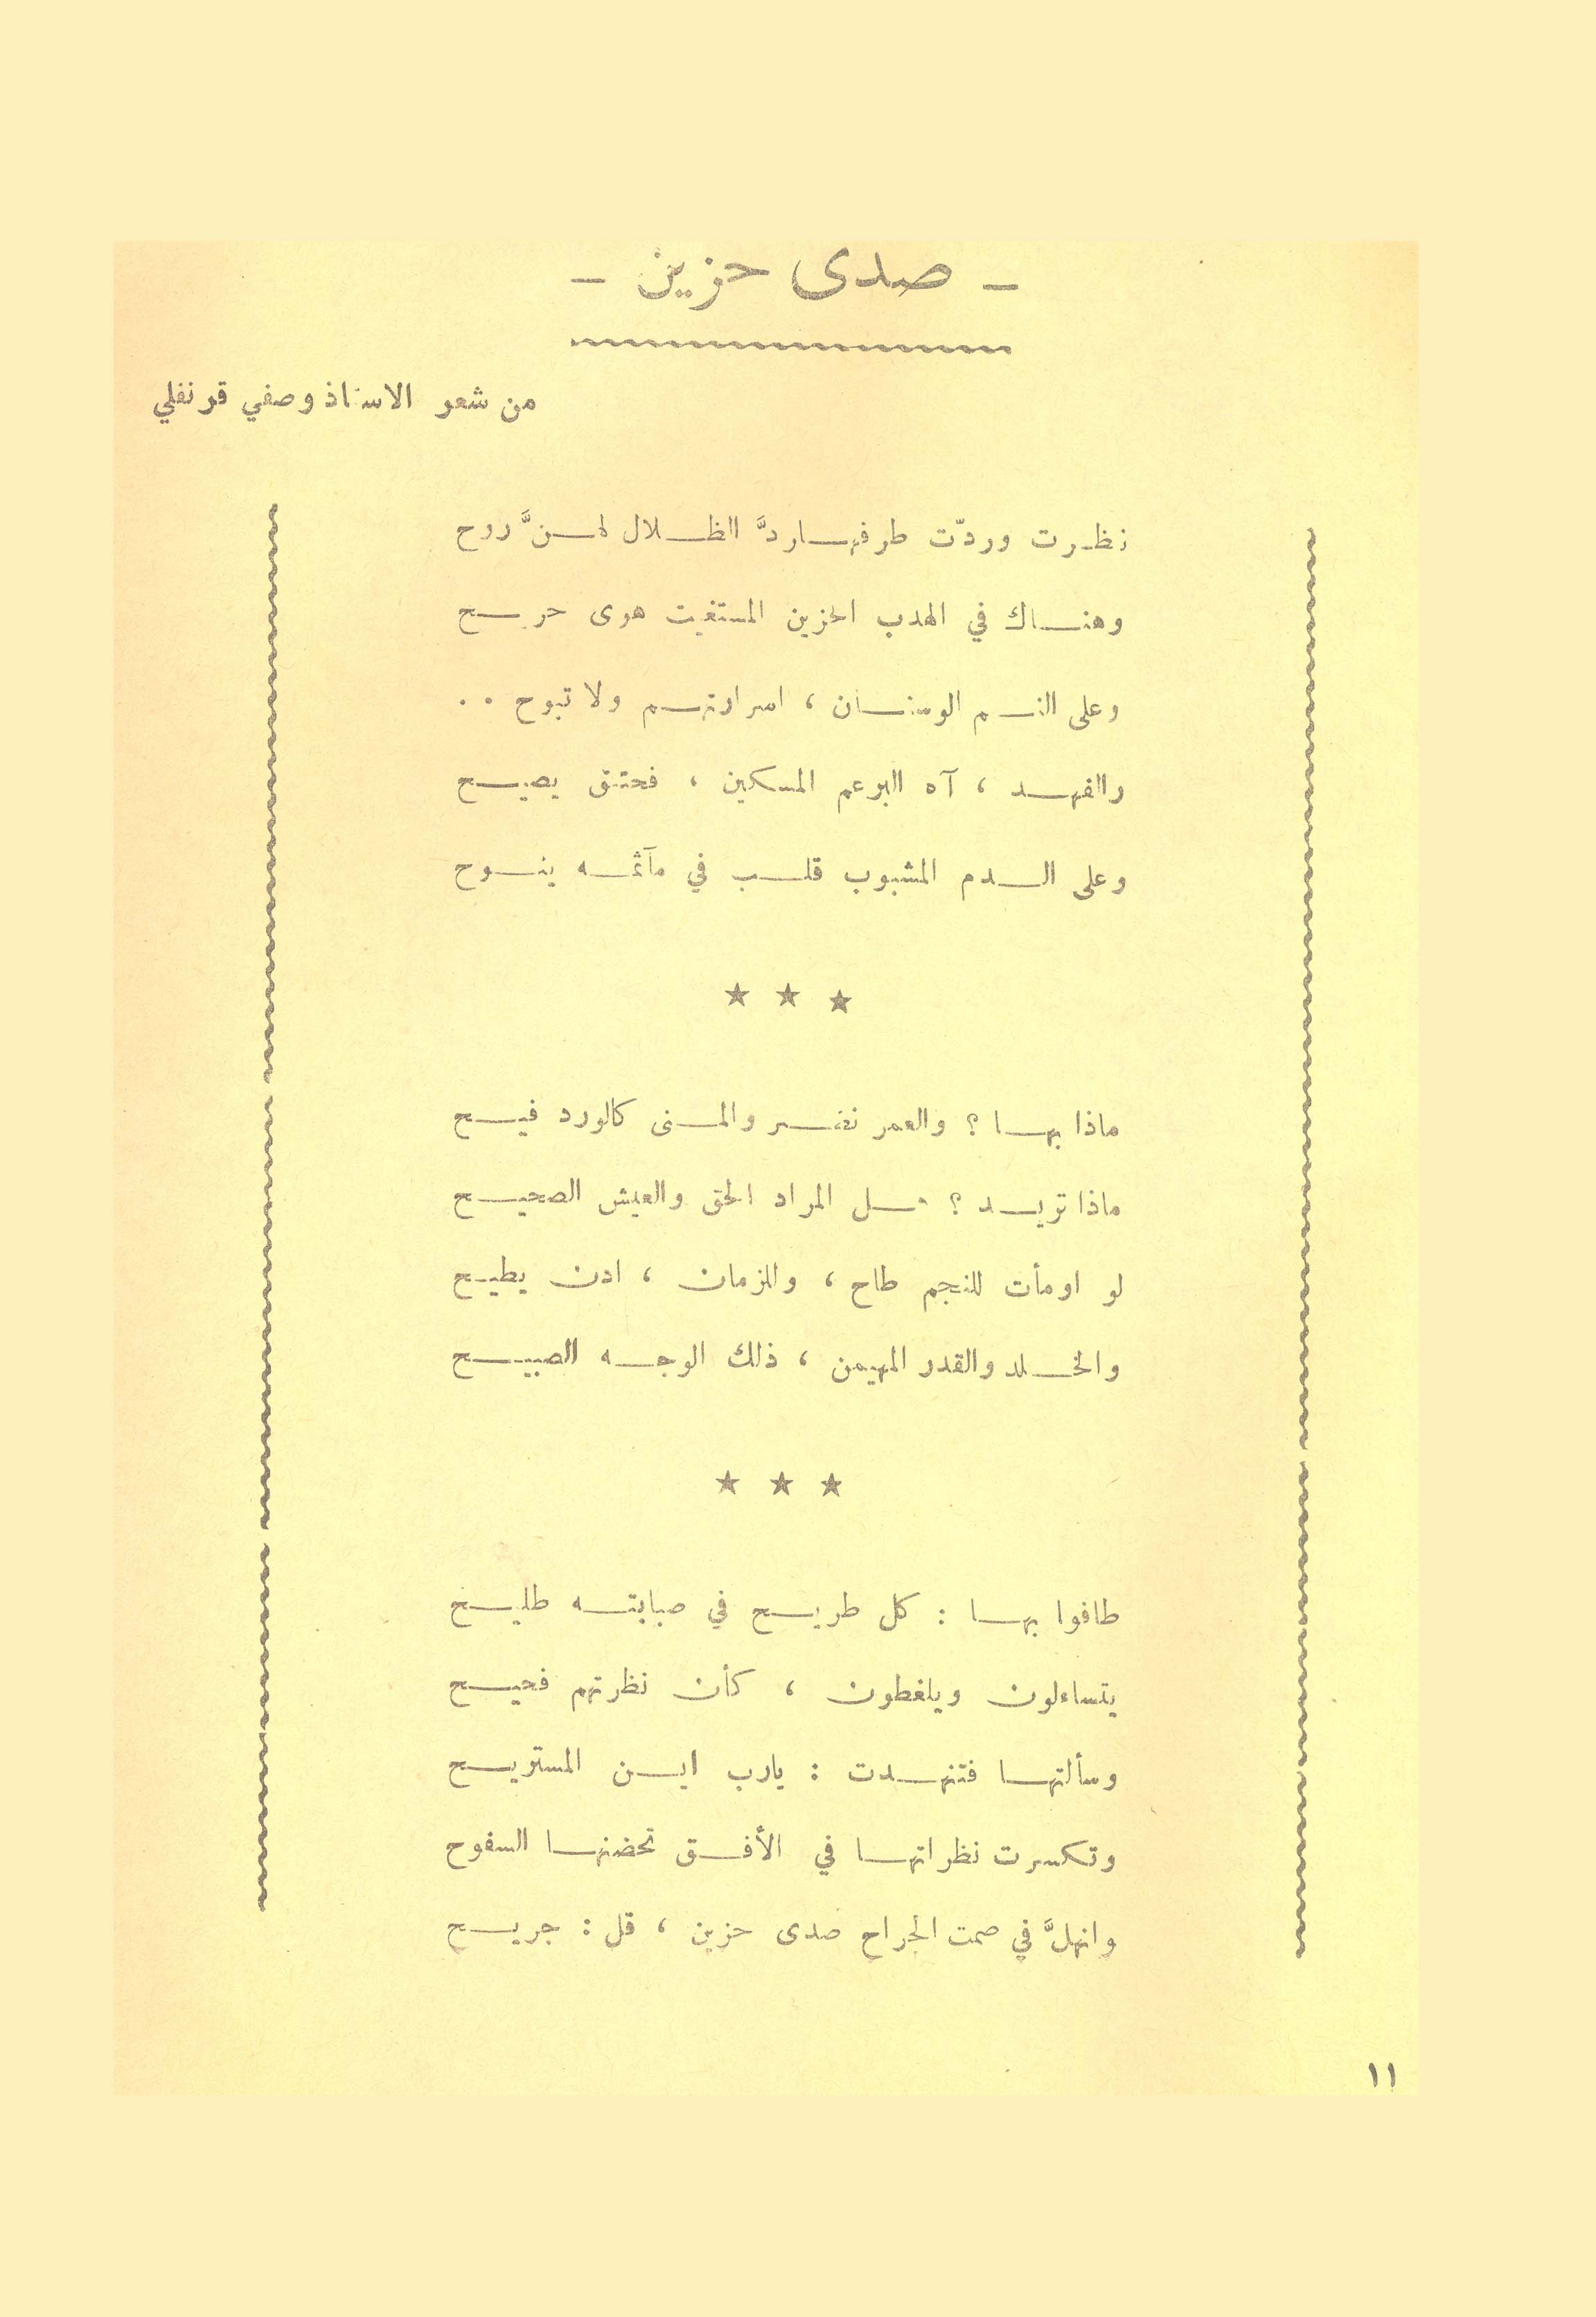 - صدى حزين -
من شعر الاستاذ وصفي قرنفلي
نظرت وردّت طرفها ردَّ الظلال لهنَّ روح
وهناك في الهدب الحزين المستغيث هوى جريح
وعلى الفم الوسنان ، اسرار تهم ولا تبوح . .
والنهد ، آه البرعم المسكين ، مختنق يصيح
وعلى الدم المشبوب قلب في مآتمه ينوح
★ ★ ★
ماذا بها ؟ والعمر نضر والمنى كالورد فيح
ماذا تريد ؟ سل المراد الحق والعيش الصحيح
لو اومأت للنجم طاح ، وللزمان ، اذن يطيح
والخلد والقدر المهيمن ، ذلك الوجه الصبيح
★ ★ ★
طافوا بها : كل طريح في صبابته طليح
يتساءلون ويلغطون ، كأن نظرتهم فحيح
وسألتها فتنهدت : يارب اين المستريح
وتكسرت نظراتها في الأفق تحضنها السفوح
وانهلَّ في صمت الجراح صدى حزين ، قل : جريح
١١